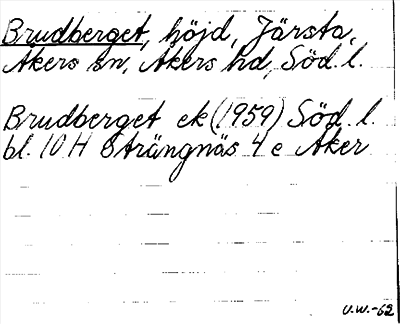 Brudberget, höjd, Järsta,
Åkers sn, Åkers hd, Söd. l.
Brudberget ek (1959) Söd. l.
bl. 10 H Strängnäs 4 e Åker
U.W.-62